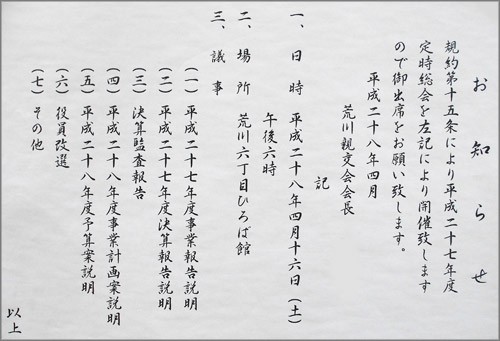 お知らせ
規約第十五条により平成二十七年度
定時総会を左記により開催致します
ので御出席をお願い致します。
平成二十八年四月
荒川親交会会長
記
一、日時 平成二十八年四月十六日(土)
午後六時
二、場所 荒川六丁目ひろば館
三、議事
(一)平成二十七年度事業報告説明
(二)平成二十七年度決算報告説明
(三)決算監査報告
(四)平成二十八年度事業計画案説明
(五)平成二十八年度予算案説明
(六)役員改選
(七)その他
以上